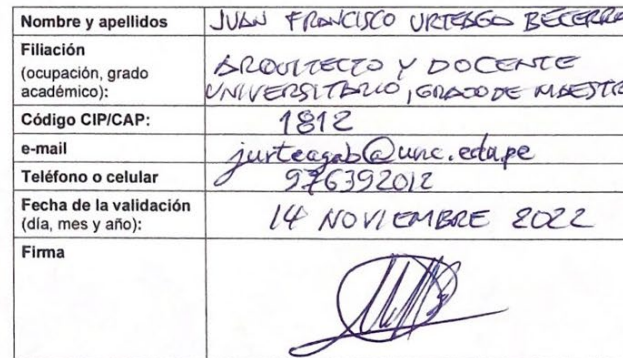 Nombre y apellidos JUAN FRANCISCO URTEAGA BECERRA
Filiación
(ocupación, grado académico): ARQUITECTO Y DOCENTE
UNIVERSITARIO, GRADO DE MAESTRO
Código CIP/CAP: 1812
e-mail jurteagab@unc.edu.pe
Teléfono o celular 976392012
Fecha de la validación
(día, mes y año): 14 NOVIEMBRE 2022
Firma